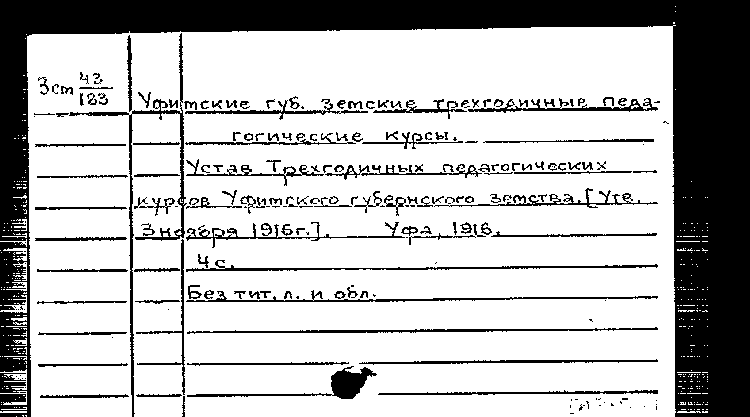 Зст 43/183
Уфимские губ. земские трехгодичные педа-
гогические курсы.
Устав Трехгодичных педагогических
курсов Уфимского губернского земства. [Утв.
3 ноября 1915г.]. Уфа, 1916.
4 с.
Без тит. л. и обл.